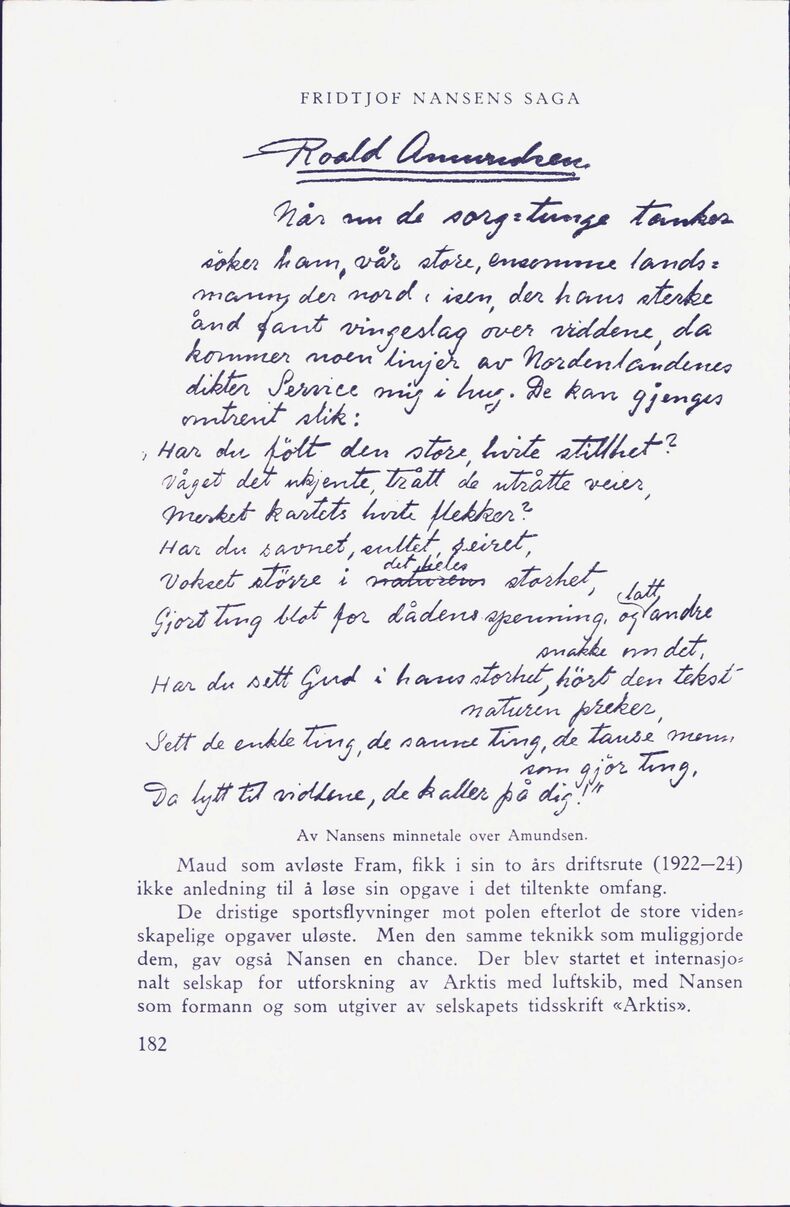 FRIDTJOF NANSENS SAGA
Roald Amundsen.
Når nu de sorg=tunge tanker
söker ham, vår store, ensomme lands=
mann, der nord i isen, der hans sterke
ånd fant vingeslag over viddene, da
kommer noen linjer av Nordenlandenes
dikter Service mig i hug. De kan gjenges
omtrent slik:
, Har du fölt den store, hvite stillhet?
Våget det ukjente, trått de utråtte veier,
Merket kartets hvite flekker?
Har du savnet, sultet, seiret,
det heles
Vokset större i naturens storhet,
latt
Gjort ting blot for dådens spenning, og andre
snakke om det,
Har du sett Gud i hans storhet, hört den tekst
naturen preker,
Sett de enkle ting, de sanne ting, de tause menn
som gjör ting,
Da lytt til viddene, de kaller på dig!"
Av Nansens minnetale over Amundsen.
Maud som avløste Fram, fikk i sin to års driftsrute (1922—24)
ikke anledning til å løse sin opgave i det tiltenkte omfang.
De dristige sportsflyvninger mot polen efterlot de store viden=
skapelige opgaver uløste. Men den samme teknikk som muliggjorde
dem, gav også Nansen en chance. Der blev startet et internasjo=
nalt selskap for utforskning av Arktis med luftskib, med Nansen
som formann og som utgiver av selskapets tidsskrift «Arktis».
182